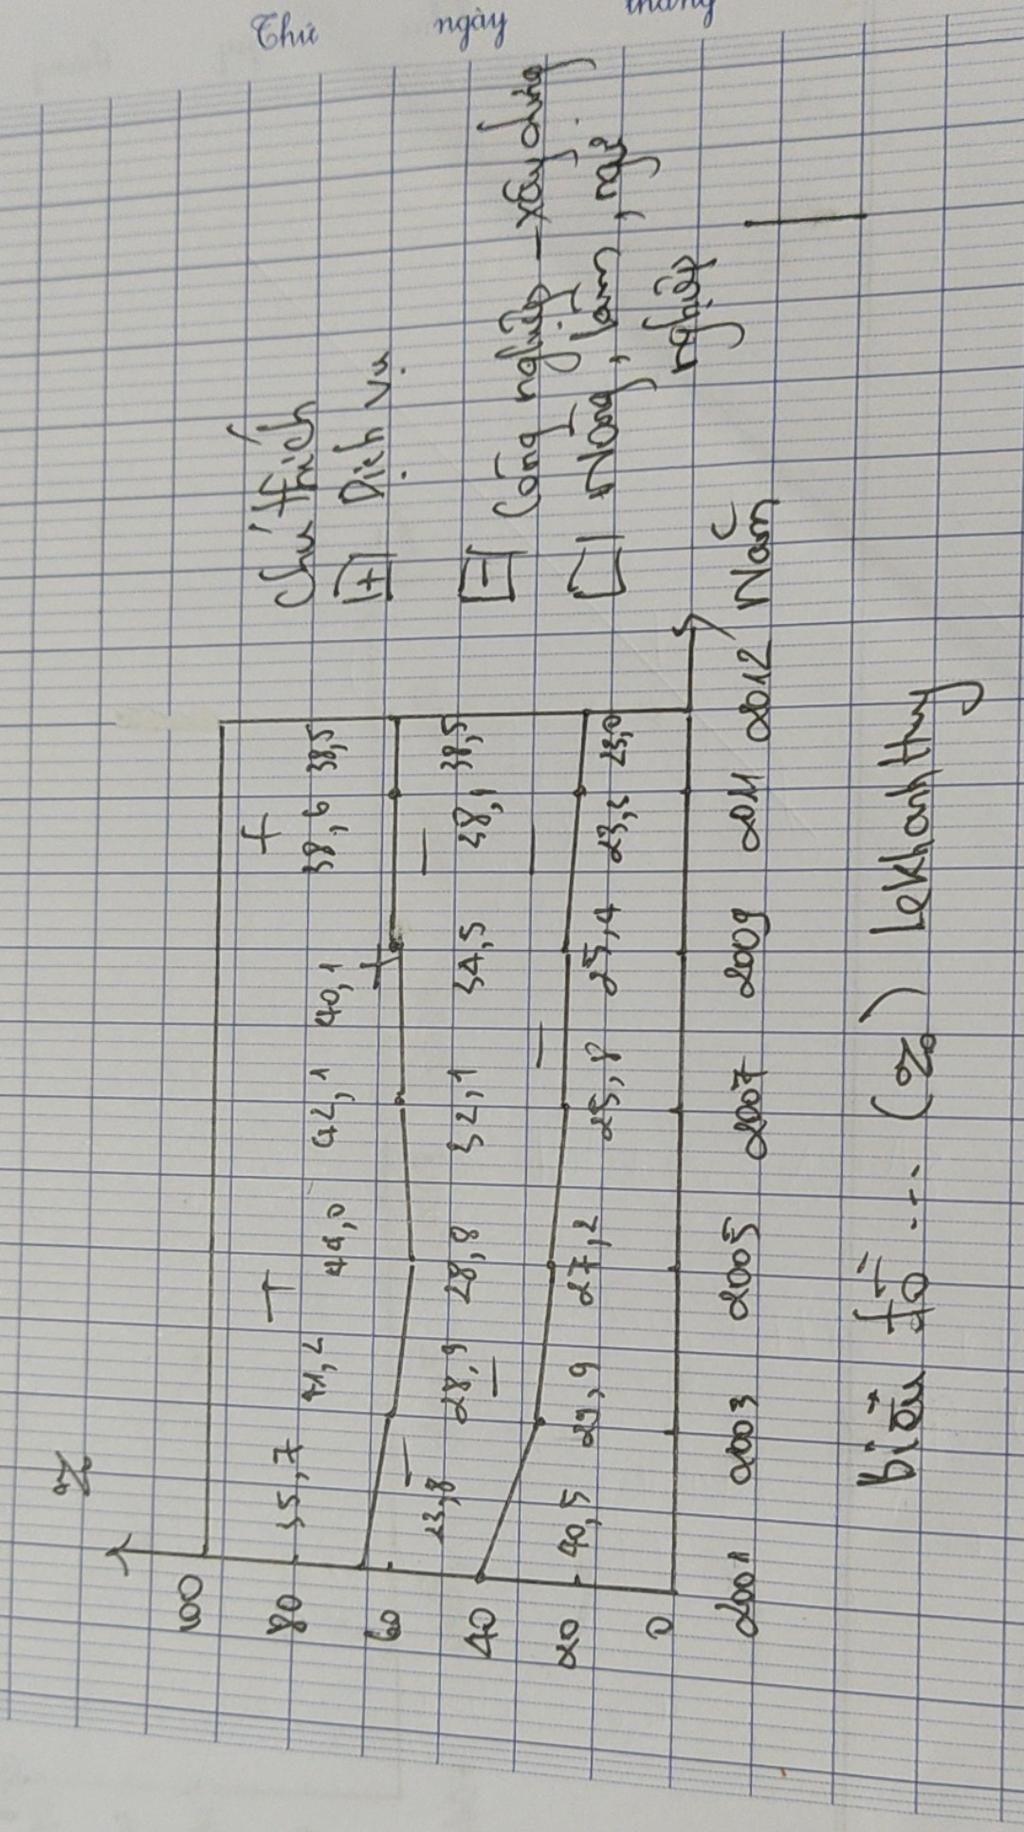 Thứ ngày tháng
%
100
80
60
40
20
0
35,7 41,2 44,0 42,1 40,1 38,6 38,5
23,8 28,9 28,8 32,1 34,5 38,1 38,5
40,5 29,9 27,2 25,8 25,4 23,3 23,0
2001 2003 2005 2007 2009 2011 2012 Năm
Chú thích
+ Dịch vụ
- Công nghiệp - xây dựng
Nông, lâm, ngư
nghiệp
Biểu đồ ... (%) LeKhanhHuy